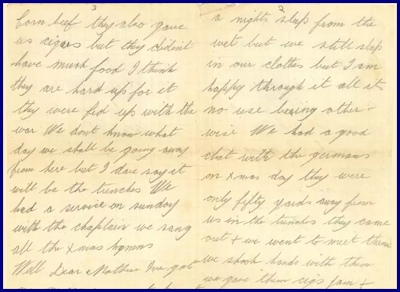 3
Corn beef they also gave
us cigars but they dident
have much food I think
they are hard up for it
they were fed up with the
war We dont know what
day we shall be going away
from here but I dare say it
will be the trenches We
had a service on sunday
with the chaplin we sang
all the Xmas hymns
Well Dear Mother Ive got
a nights sleep from the
wet but we still sleep
in our clothes but I am
happy through it all its
no use being other
wise We had a good
chat with the germans
on Xmas day they were
only fifty yards away from
us in the trenches they came
out + we went to meet them
we shook hands with them
we gave them cigs jam +